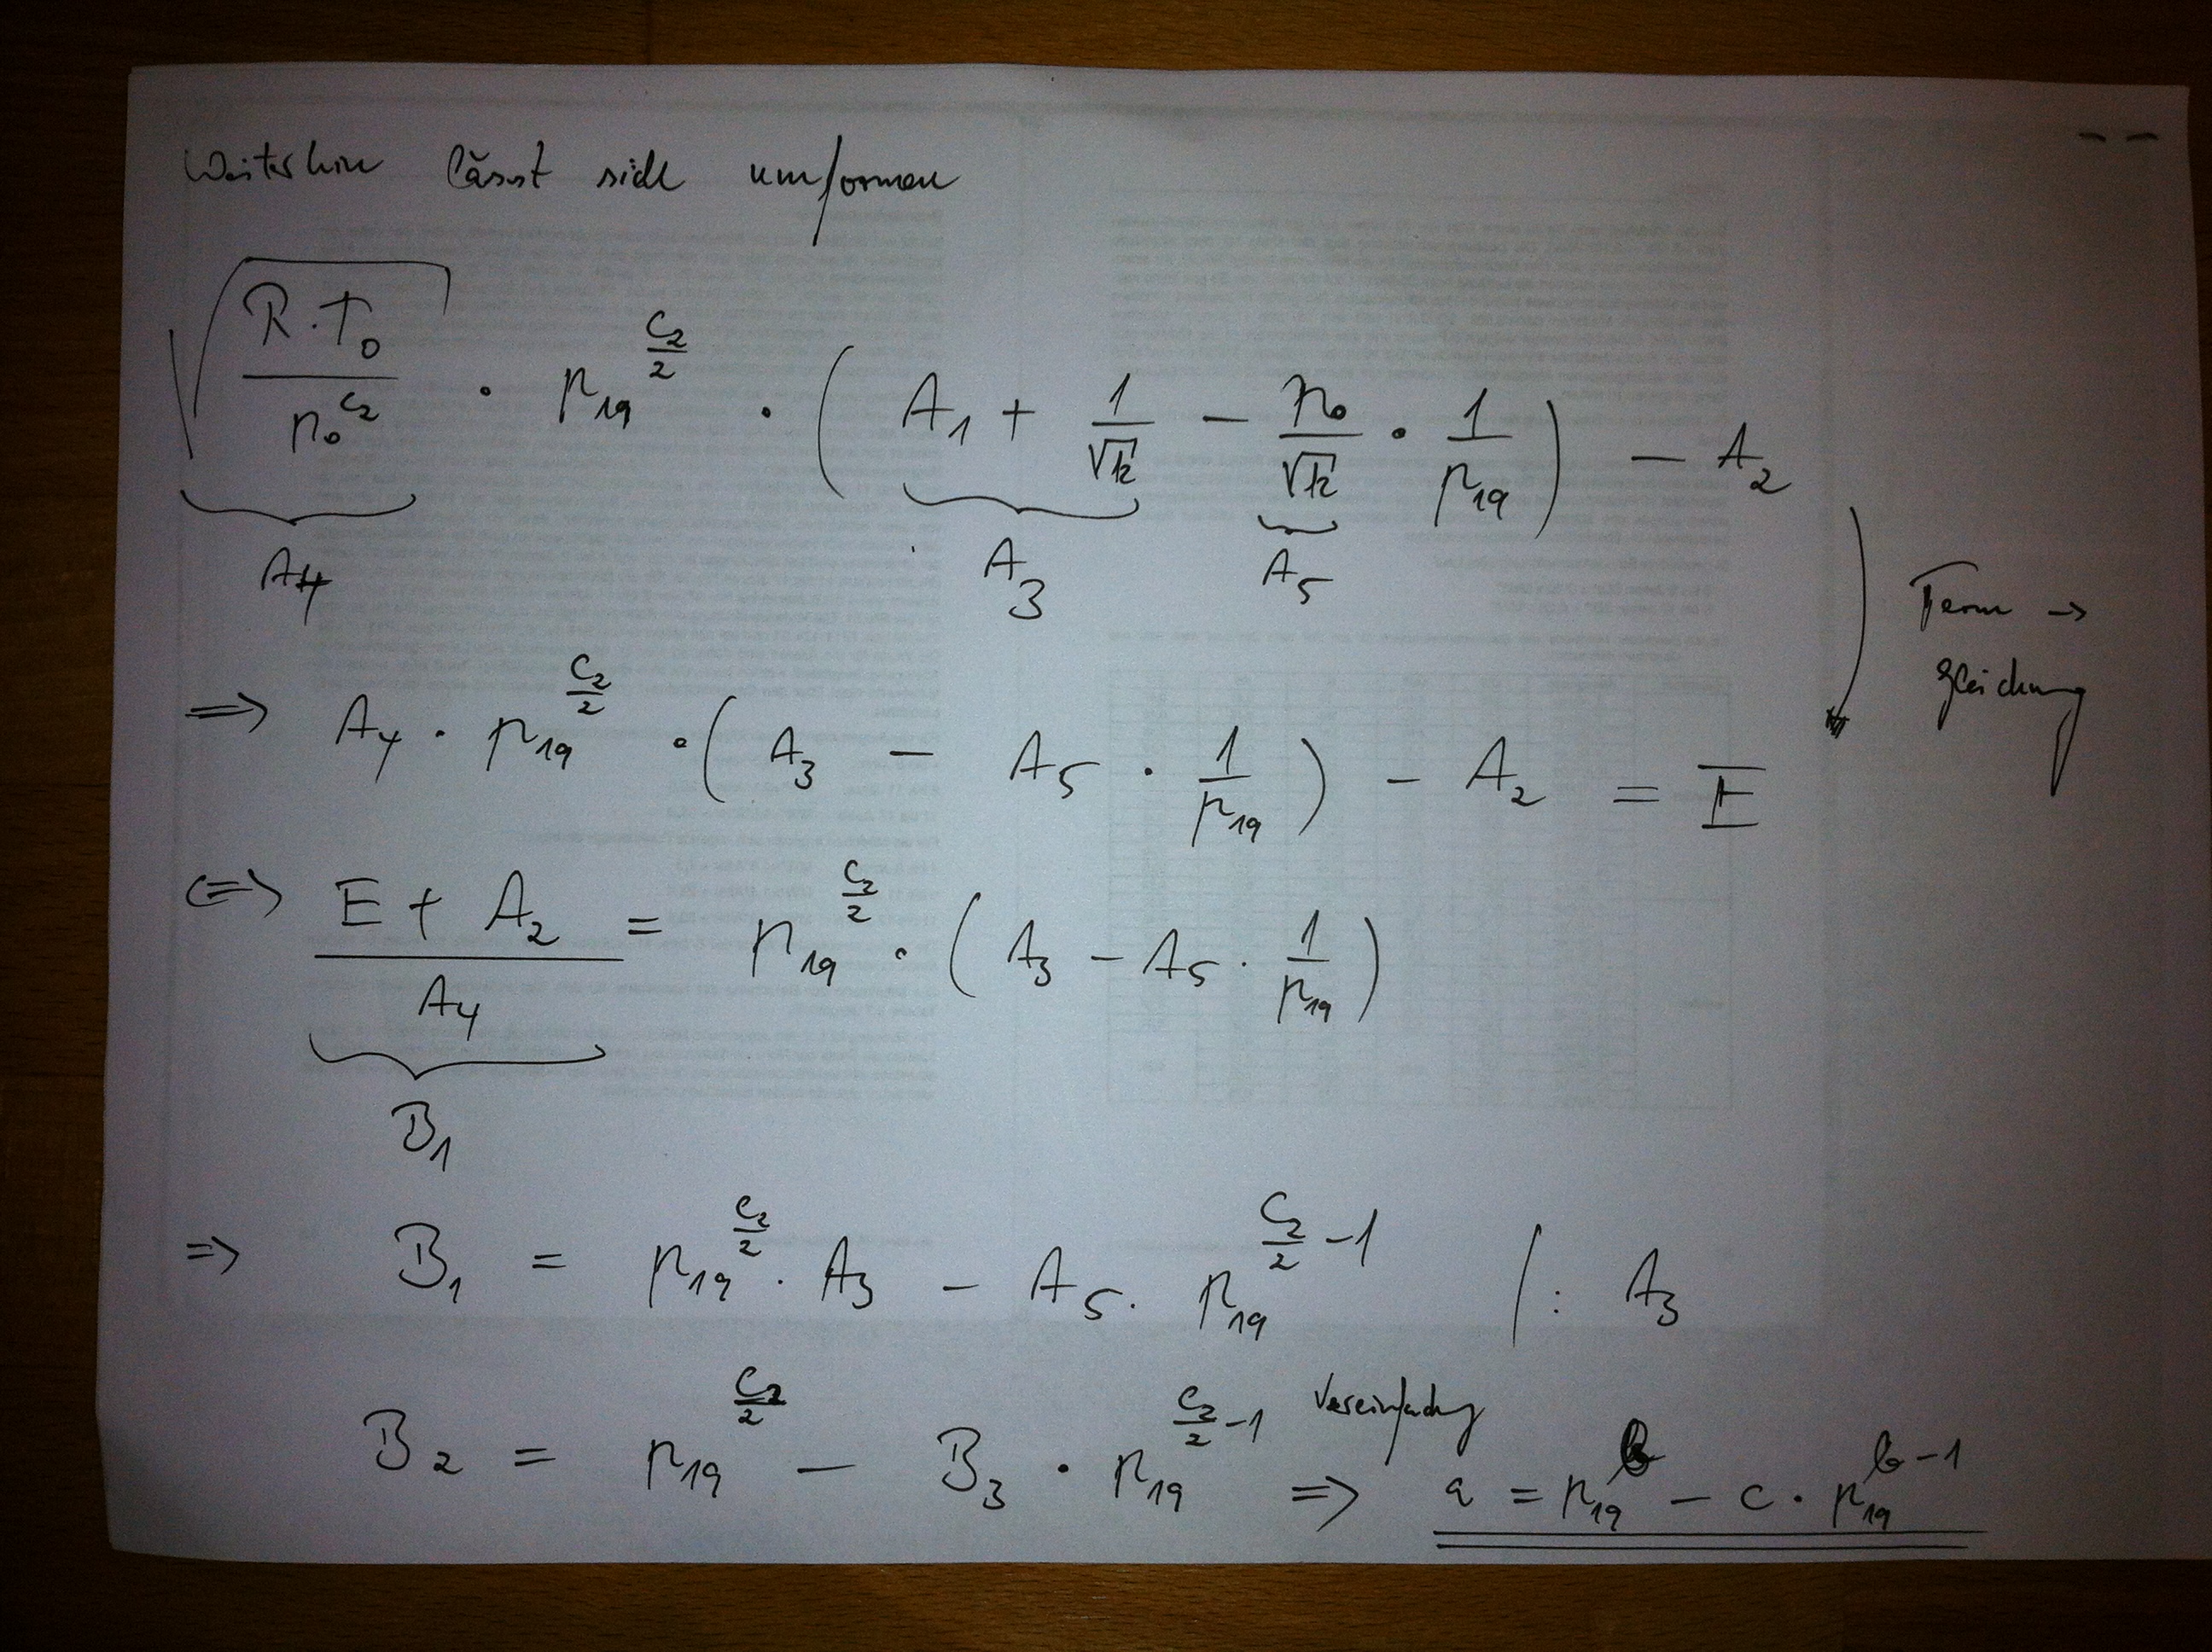 Weiterhin lässt sich umformen
√(R·T₀ / p₀^c₂) · p₁₉^(c₂/2) · (A₁ + 1/√k − p₀/√k · 1/p₁₉) − A₂
A₄ A₃ A₅
Term →
Gleichung
⇒ A₄ · p₁₉^(c₂/2) · (A₃ − A₅ · 1/p₁₉) − A₂ = E
⇔ (E + A₂)/A₄ = p₁₉^(c₂/2) · (A₃ − A₅ · 1/p₁₉)
B₁
⇒ B₁ = p₁₉^(c₂/2) · A₃ − A₅ · p₁₉^(c₂/2 −1) | : A₃
B₂ = p₁₉^(c₂/2) − B₃ · p₁₉^(c₂/2 −1) Vereinfachung ⇒ a = p₁₉^b − c · p₁₉^(b−1)